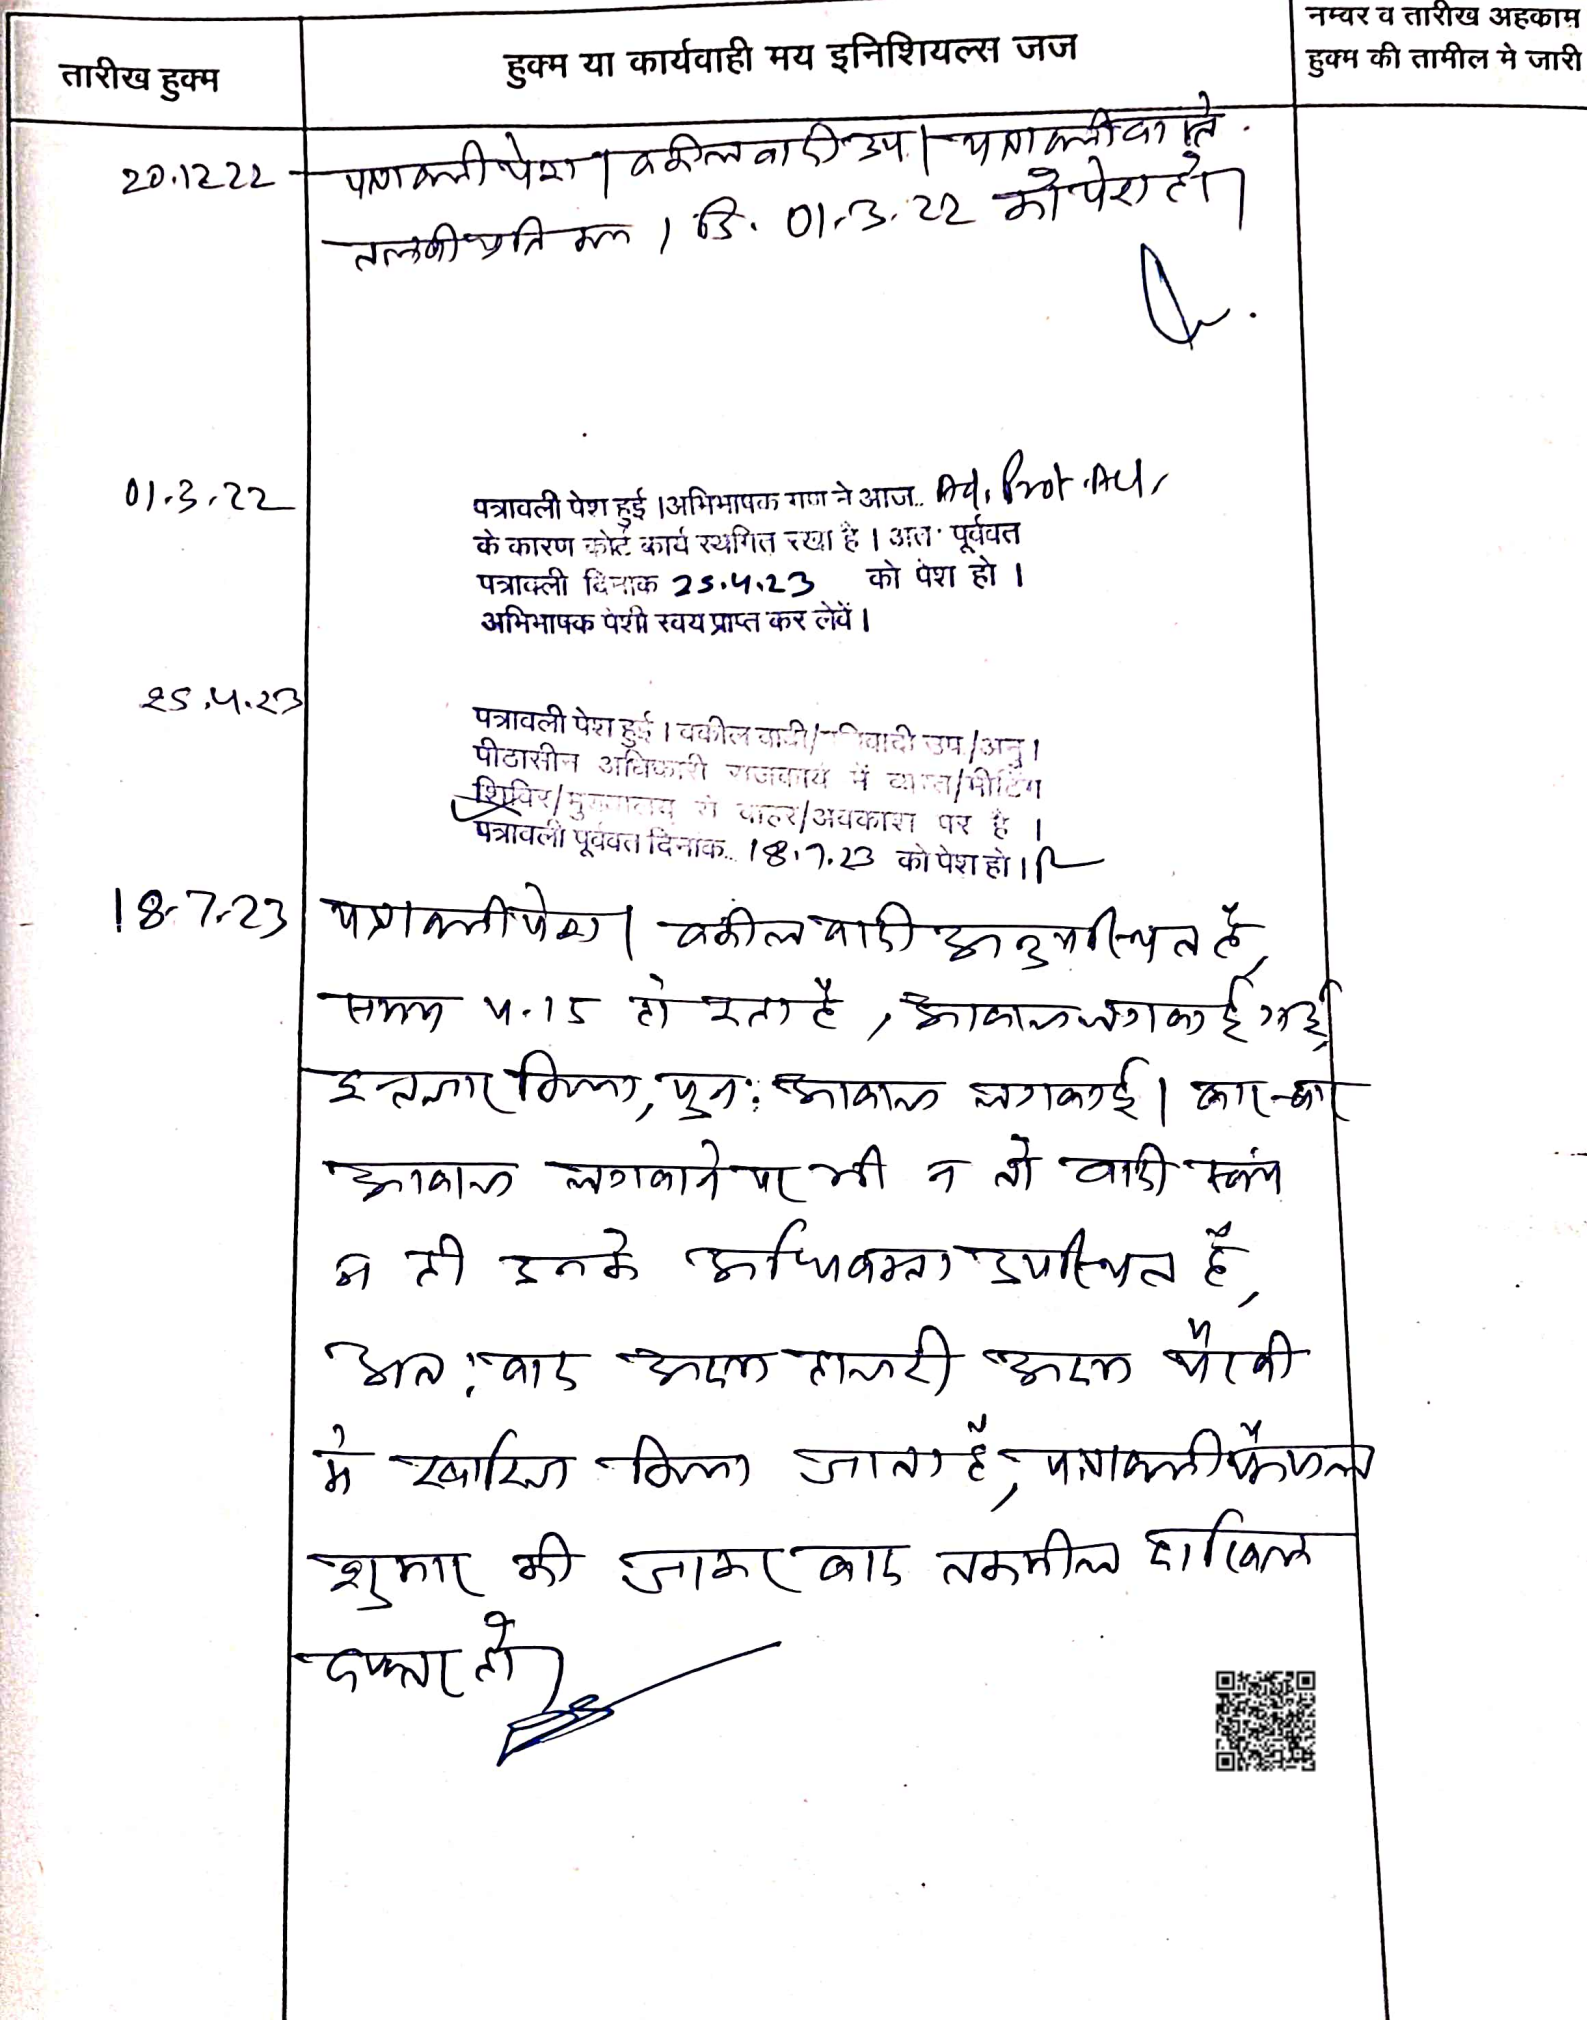 नम्वर व तारीख अहकाम
तारीख हुक्म
हुक्म या कार्यवाही मय इनिशियल्स जज
हुक्म की तामील मे जारी
20.12.22 पत्रावली पेश। वकील वादी उप। पत्रावली वास्ते
तलबी प्रति वास्ते । दि. 01.3.22 को पेश हो।
01.3.22
पत्रावली पेश हुई ।अभिभाषक गण ने आज.. Ad. Prot. Act
के कारण कोर्ट कार्य स्थगित रखा है । अतः पूर्ववत
पत्रावली दिनाक 25.4.23 को पेश हो ।
अभिभाषक पेशी स्वय प्राप्त कर लेवें ।
25.4.23
पत्रावली पेश हुई । वकील वादी/प्रतिवादी उप/अनु।
पीठासीन अधिकारी राजकार्य में व्यस्त/मीटिंग
शिविर/मुख्यालय से बाहर/अवकाश पर है ।
पत्रावली पूर्ववत दिनाक.. 18.7.23 को पेश हो ।
18.7.23 पत्रावली पेश। वकील वादी अनुपस्थित है,
समय 4.15 हो रहा है, आवाज लगवाई गई,
इन्तजार किया, पुन: आवाज लगवाई। बार-बार
आवाज लगवाने पर भी न तो वादी स्वंय
न ही उनके अधिवक्ता उपस्थित है,
अत: वाद अदम हाजरी अदम पैरवी
मे खारिज किया जाता है, पत्रावली फैसल
शुमार की जाकर बाद तकमील दाखिल
दफ्तर हो